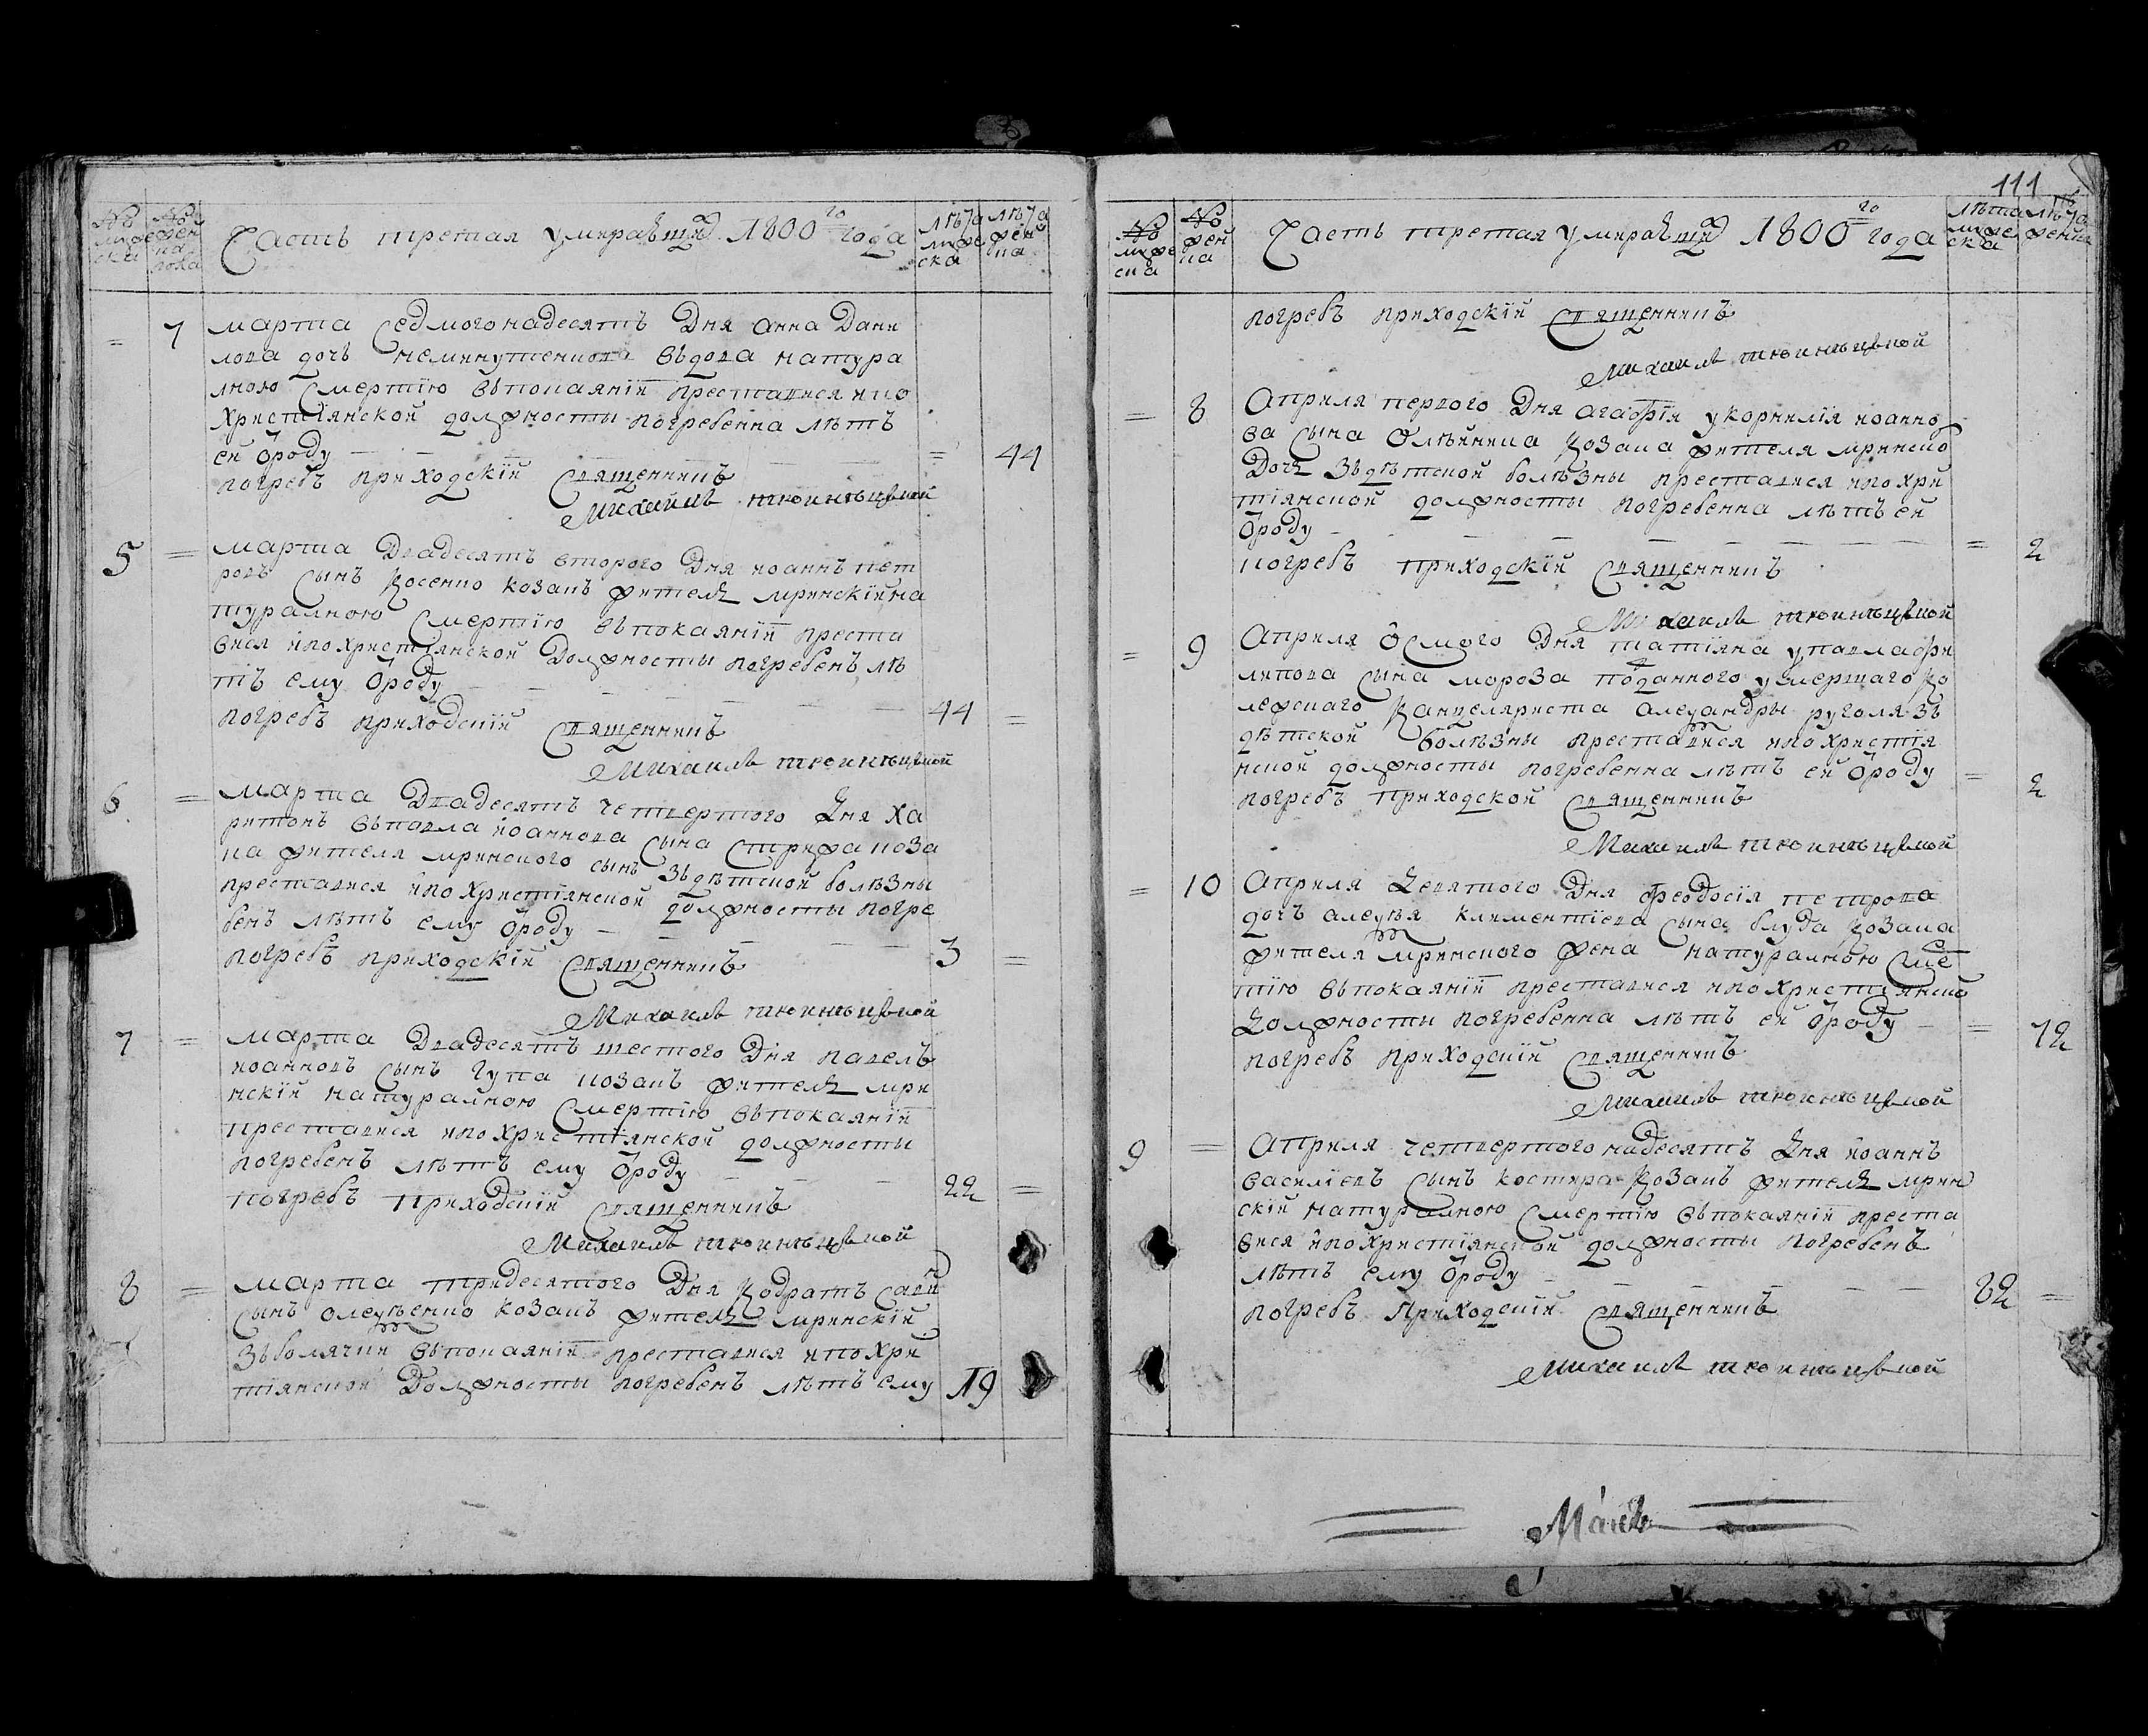 № мужеска
№ женска пола
Часть третая умиравших 1800 го года
лѣта мужеска
лѣта женска
= 7 марта седмогонадесять Дня анна Дани
лова дочь вьдова натура
лною смертїю вьпокаянїи преставися ипо
Христїянской должности погребенна лѣтъ
ей ѿроду = 44
погребъ приходскїй священникъ
Михаилъ
5 = марта Двадесять второго Дня иоаннъ пет
ровъ сынъ косенко козакъ жителъ мринскїй на
туралною смертїю вьпокаянїи преста
вися ипохристїянской Должности погребенъ лѣ
тъ ему ѿроду 44 =
погребъ приходскїй священникъ
Михаилъ
6 = марта Двадесять четвертого Дня Ха
ритонъ вьпавла иоаннова сына стрижа коза
ка жителя мринского сынъ зьдѣтской болѣзны
преставися ипохристїянской должности погре
бенъ лѣтъ ему ѿроду 3 =
погребъ приходскїй священникъ
Михаилъ
7 = марта Двадесять шестого Дня павелъ
иоанновъ сынъ гупа козакъ жителъ мри
нскїй натуралною смертїю вьпокаянїи
преставися ипохристїянской должности
погребенъ лѣтъ ему ѿроду 22 =
погребъ приходскїй священникъ
Михаилъ
8 = марта тридесятого Дня кодратъ
сынъ олеѯѣенко козакъ жителъ мринскїй
зьболячки вьпокаянїи преставися ипохри
тїянской Должности погребенъ лѣтъ ему 19
111
№ мужеска
№ женска
Часть третая умиравших 1800 го года
лѣта мужеска
лѣта женска
погребъ приходскїй священникъ
Михаилъ
= 8 Априля первого Дня агафїя укорнилїя иоанно
ва сына олѣйника козака жителя мринско
Дочъ зьдѣтской болѣзны преставися ипохри
тїянской должности погребенна лѣтъ ей
ѿроду = 2
погребъ приходскїй священникъ
Михаилъ
= 9 Априля ѡсмого Дня татїяна упавла фи
липова сына мороза подданного умершаго ко
лежскаго канцеляриста алеѯандры руголя зь
дѣтской болѣзны преставися ипохристїя
нской должности погребенна лѣтъ ей ѿроду = 2
погребъ приходской священникъ
Михаилъ
= 10 Априля Девятого Дня феодосїя петрова
дочъ алеѯѣя климентїева сына блуда козака
жителя мринского жена натуралною сме
тїю вьпокаянїи преставися ипохристїянско
Должности погребенна лѣтъ ей ѿроду = 72
погребъ приходскїй священникъ
Михаилъ
9 = Априля четвертогонадесять Дня иоаннъ
василїевъ сынъ костира козакъ жителъ мрин
скїй натуралною смертїю вьпокаянїи преста
вися ипохристїянской должности погребенъ
лѣтъ ему ѿроду 82 =
погребъ приходскїй священникъ
Михаилъ